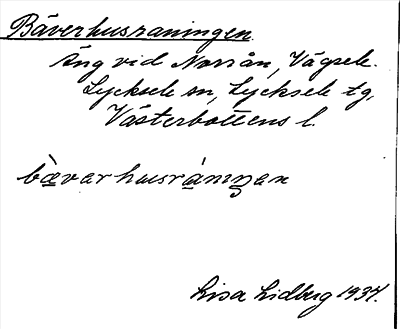 Bäverhusraningen
Äng vid Norrån, Vägsele.
Lycksele sn, Lycksele tg,
Västerbottens l.
bä̱verhusrà̱niŋen
Lisa Lidberg 1937.